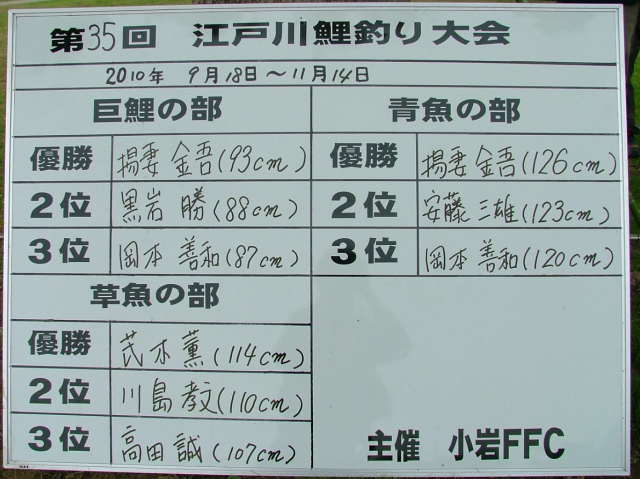 第35回 江戸川鯉釣り大会
2010年 9月18日～11月14日
巨鯉の部
優勝 揚妻 金吾(93cm)
2位 黒岩 勝(88cm)
3位 岡本 善和(87cm)
青魚の部
優勝 揚妻 金吾(126cm)
2位 安藤 三雄(123cm)
3位 岡本 善和(120cm)
草魚の部
優勝 茂木 薫(114cm)
2位 川島 教文(110cm)
3位 高田 誠(107cm)
主催 小岩FFC